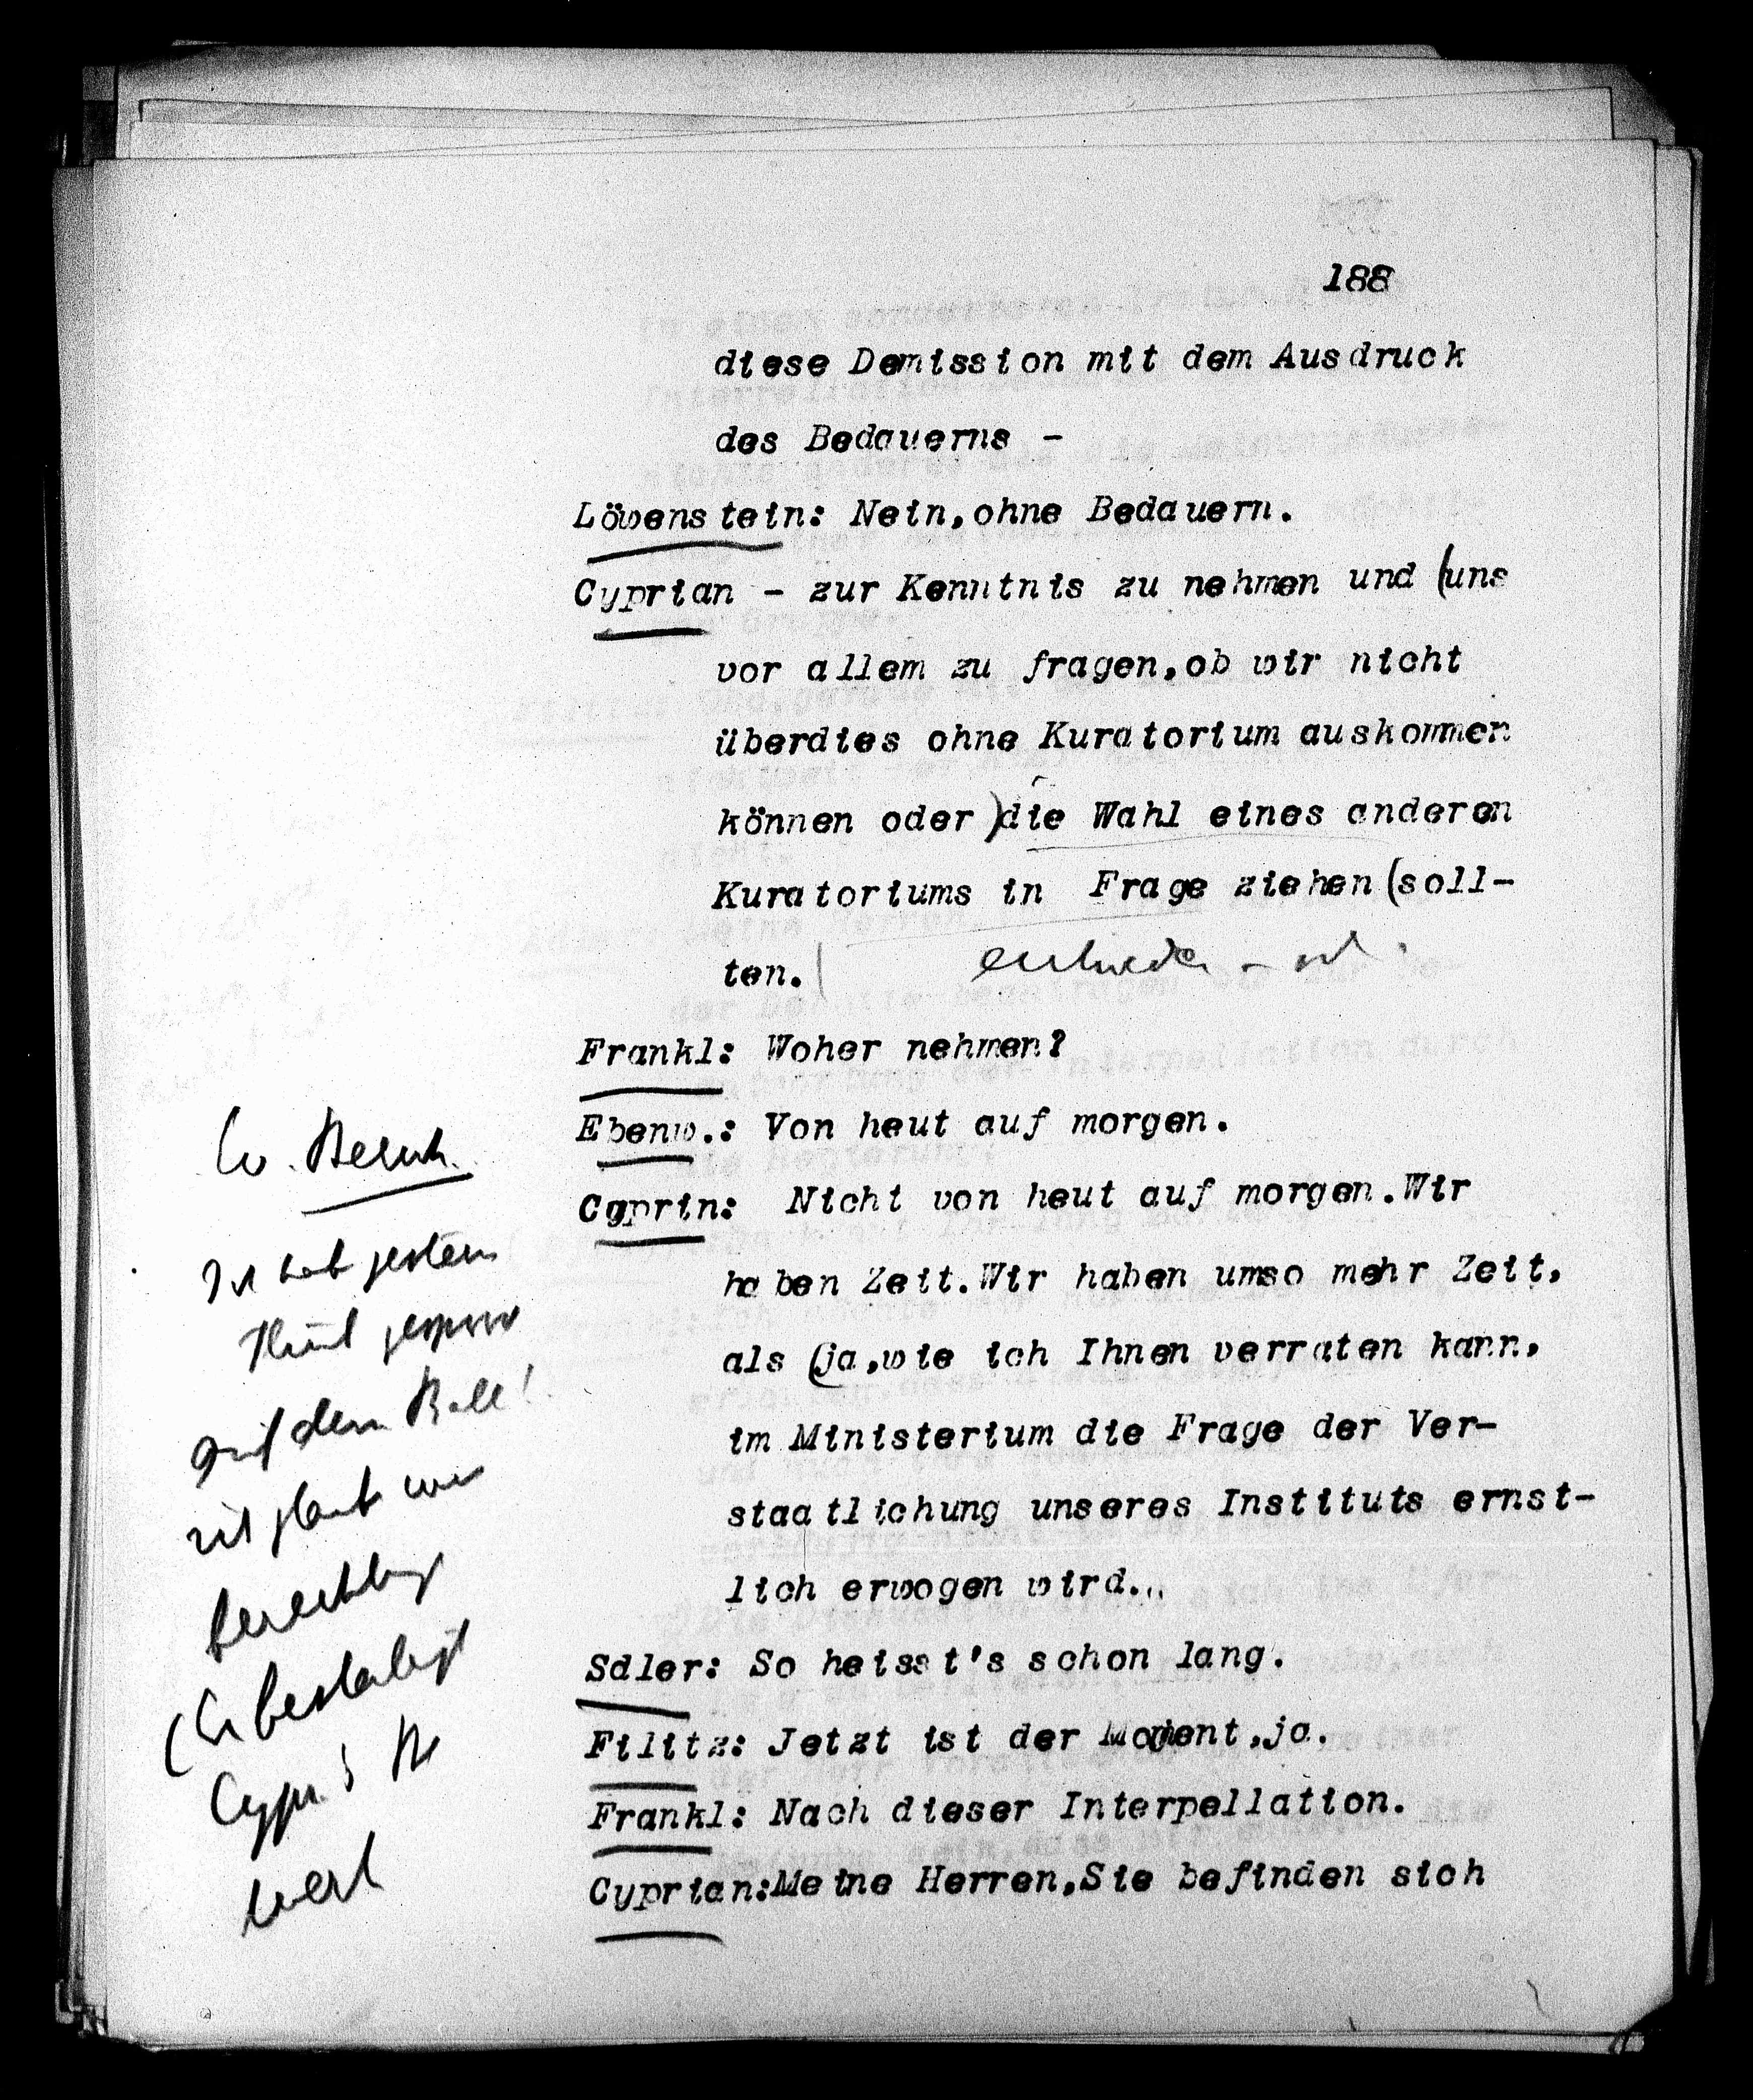 188
diese Demission mit dem Ausdruck
des Bedauerns -
Löwenstein: Nein,ohne Bedauern.
Cyprian - zur Kenntnis zu nehmen und (uns
vor allem zu fragen,ob wir nicht
überdies ohne Kuratorium auskommen
können oder )die Wahl eines anderen
Kuratoriums in Frage ziehen (soll-
ten.)
entweder - od
Frankl: Woher nehmen?
Ebenw.: Von heut auf morgen.
Cyprin: Nicht von heut auf morgen.Wir
haben Zeit.Wir haben umso mehr Zeit,
als (ja,wie ich Ihnen verraten kann,
im Ministerium die Frage der Ver-
staatlichung unseres Instituts ernst-
lich erwogen wird...
Sdler: So heisst's schon lang.
Filitz: Jetzt ist der Moment,ja.
Frankl: Nach dieser Interpellation.
Cyprian:Meine Herren,Sie befinden sich
Ich hab gestern
Flint
auf dem Ball!
berechtigt
bestätigt
Cypr.
wert